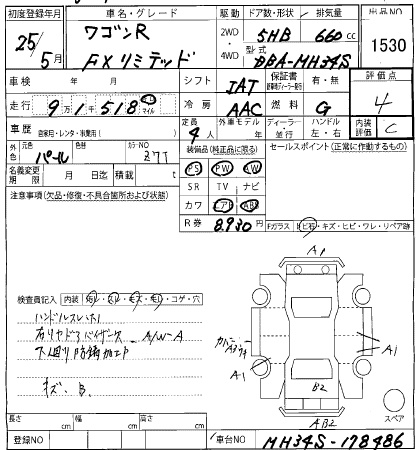 初度登録年月 車名・グレード 駆動 ドア数・形状 排気量 出品NO
25/5月 ワゴンR 2WD 4WD 5HB 660cc 1530
FXリミテッド 型式 DBA-MH34S
車検 年 月 シフト IAT 保証書 有・無 評価点
走行 9万1千518 km マイル 冷房 AAC 燃料 G 4
車歴 自家用・レンタ・
定員 4人 外車モデル 年 ディーラー 並行 ハンドル 左・右 内装評価 C
外色 元色 パール 色替 カラーNO Z7T
装備品(純正品に限る) セールスポイント(正常に作動するもの)
名義変更期限 月 日迄 積載 t
PS PW AW
SR TV ナビ
カワ エアB ABS
R券 8.930円
注意事項(欠品・修復・不具合箇所および状態)
Fガラス ヒビ石・キズ・ヒビ・ワレ・リペア跡
検査員記入 内装 ヨゴレ・スレ・キズ・モゲ・コゲ・穴
ハンドルスレ
A/W-A
下廻り防錆加工
キズ、B.
A1
A1
A1
B2
AB2
スペア
長さ cm 幅 cm 高さ cm
登録NO 車台NO MH34S-178486